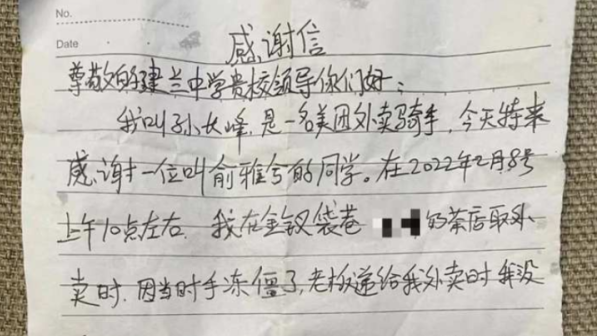 No.
Date
感谢信
尊敬的建兰中学贵校领导你们好:
我叫孙长峰,是一名美团外卖骑手,今天特来
感谢一位叫俞雅兮的同学。在2022年2月8号
上午10点左右,我在金钗袋巷 奶茶店取外
卖时,因当时手冻僵了,老板递给我外卖时我没